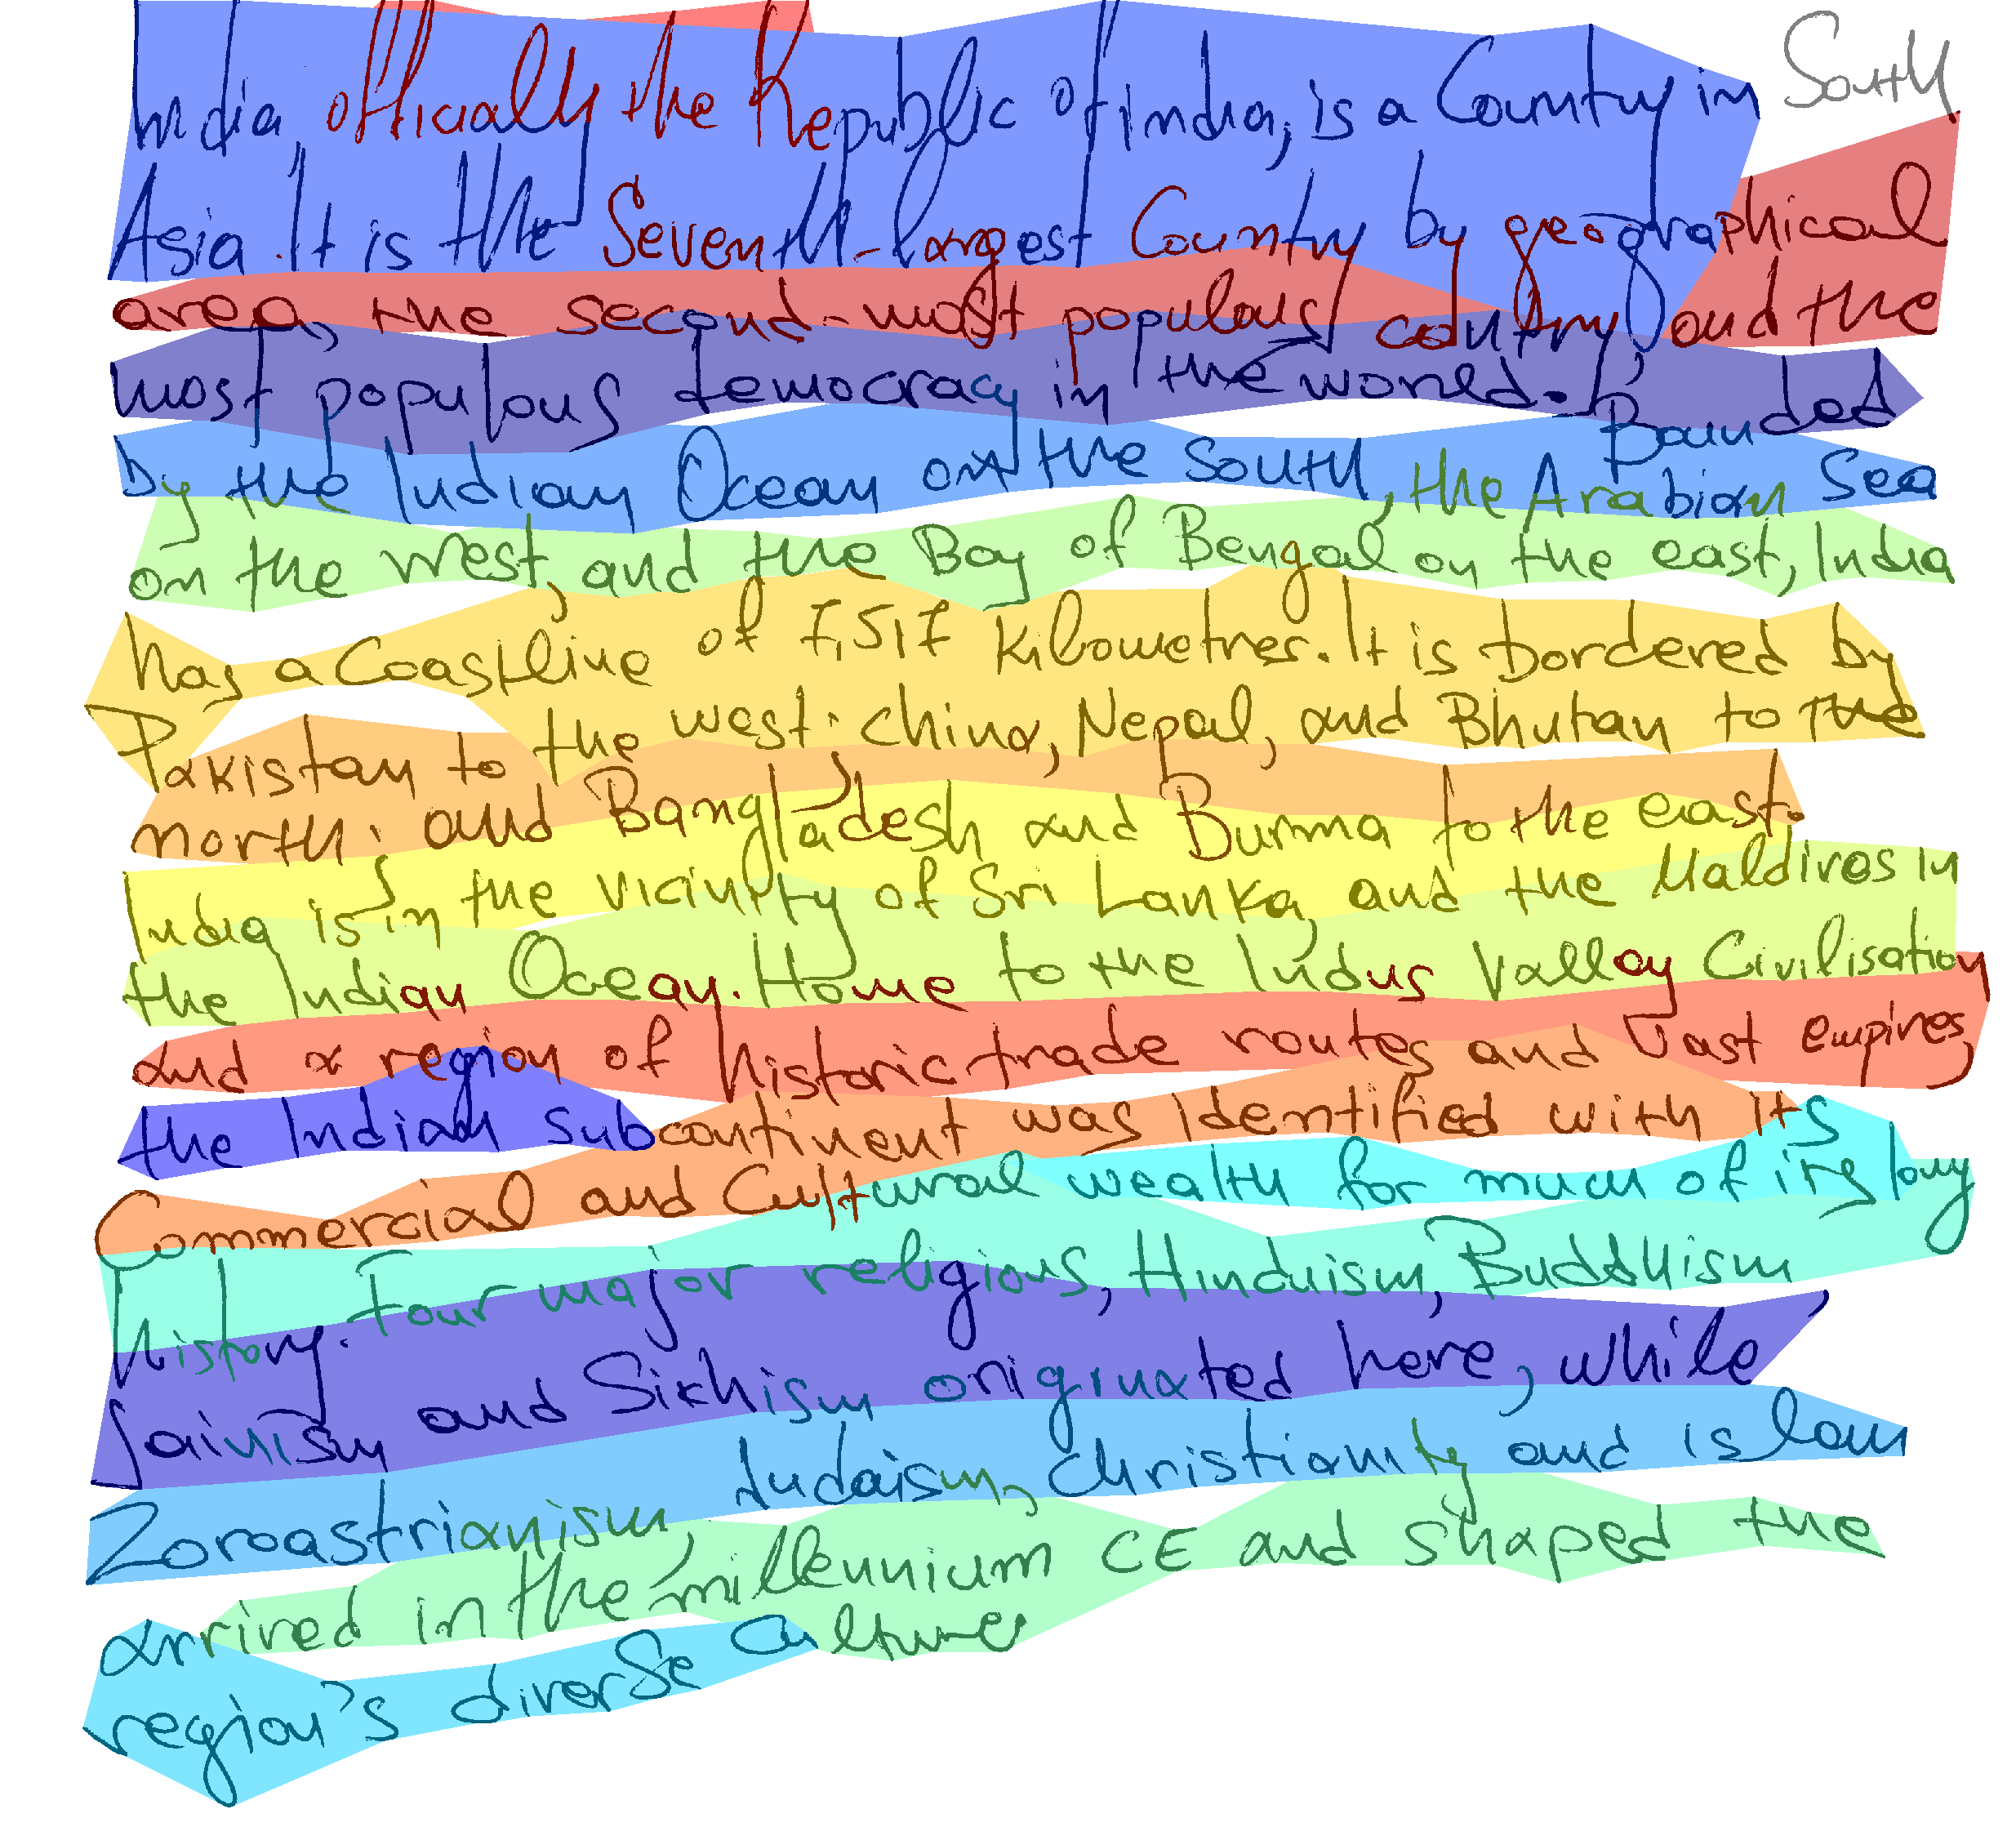 India, officially the Republic of india, is a Country in South
Asia. It is the Seventh-largest Country by geographical
area, the second-most populous country, and the
most populous democracy in the world. Bounded
by the Indian Ocean on the south, the Arabian Sea
on the west, and the Bay of Bengal on the east, India
has a Coastline of 7,517 kilometres. It is bordered by
Pakistan to the west. china, Nepal, and Bhutan to the
north. and Bangladesh and Burma to the east.
India is in the vicinity of Sri Lanka, and the Maldives in
the Indian Ocean. Home to the Indus Valley Civilisation
and a region of historic trade routes and vast empires,
the Indian subcontinent was identified with its
Commercial and Cultural wealth for much of its long
history. Four major religious, Hinduism, Buddhism
Jainism and Sikhism originated here, while
Zoroastrianism, Judaism, Christianity and islam
arrived in the millennium CE and shaped the
region's diverse culture